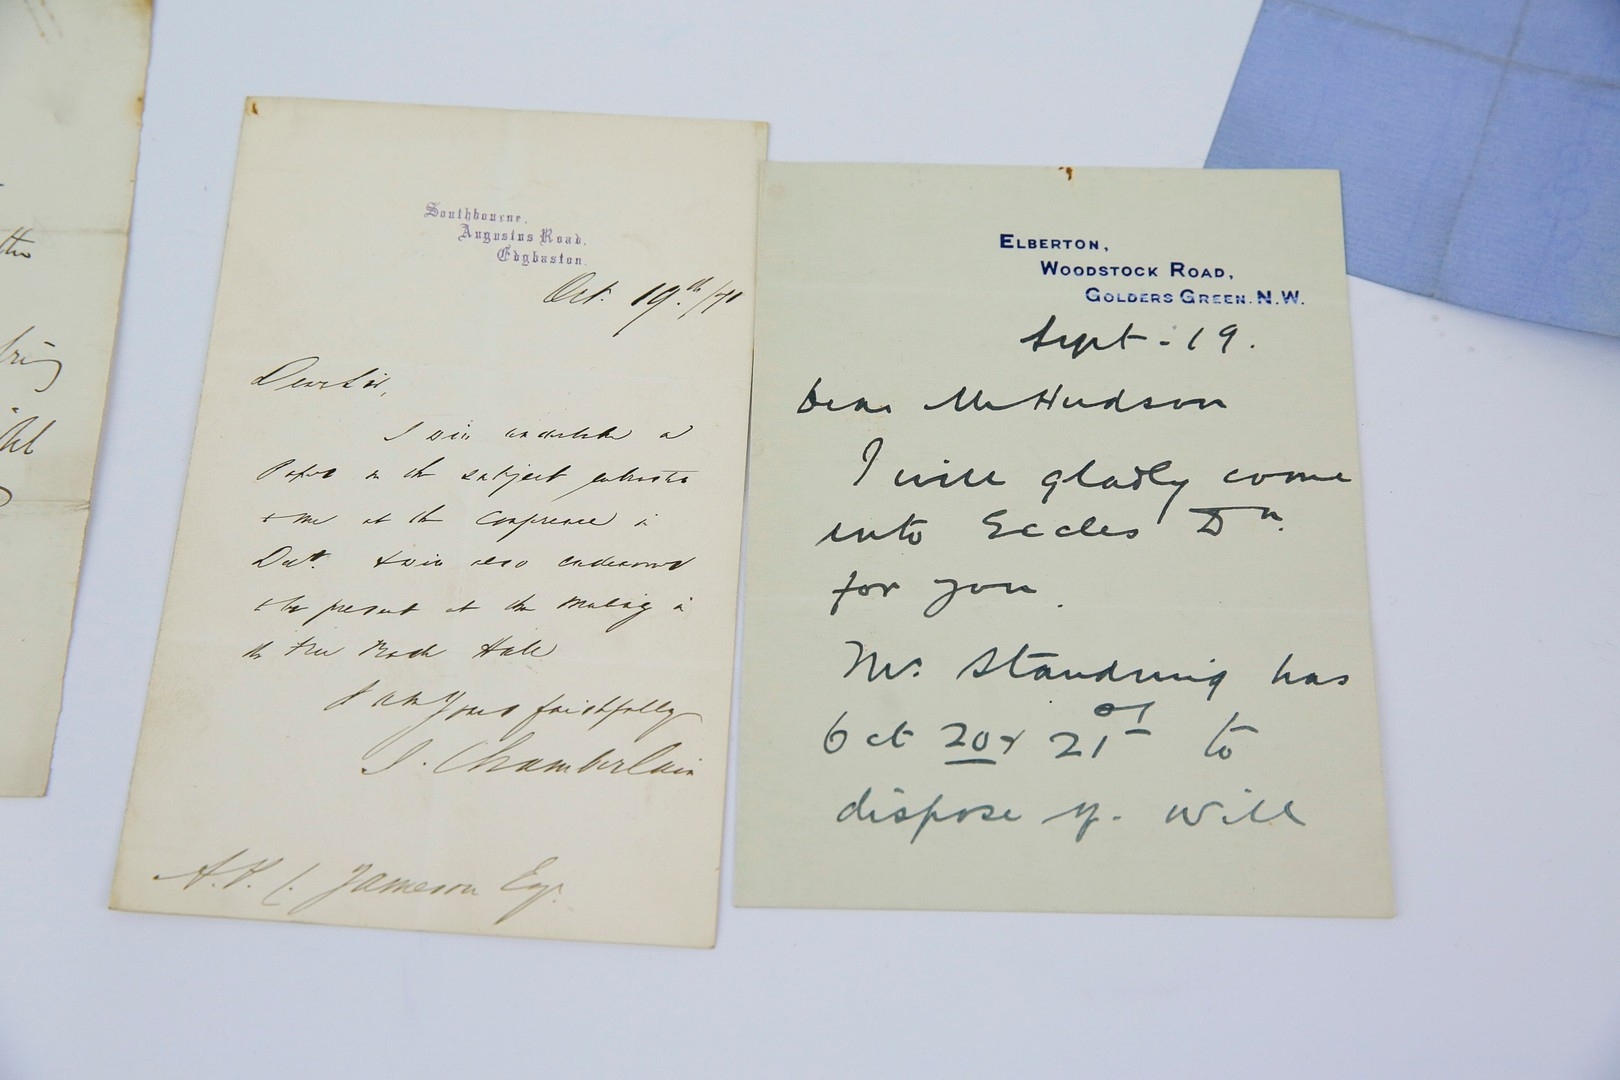 Southbourne.
Augustus Road.
Edgbaston.
Oct. 19th/71
Dear Sir,
I will undertake a
Paper on the subject
to me at the Conference in
Octr. I will also endeavour
to be present at the Meeting in
the Free Trade Hall
I am Yours faithfully
J. Chamberlain
Jameson Esqr.
ELBERTON,
WOODSTOCK ROAD,
GOLDERS GREEN. N.W.
Sept - 19.
Dear Mr Hudson
I will gladly come
into Eccles Dn.
for you.
Mr. Standring has
Oct 20 & 21st to
dispose of. Will